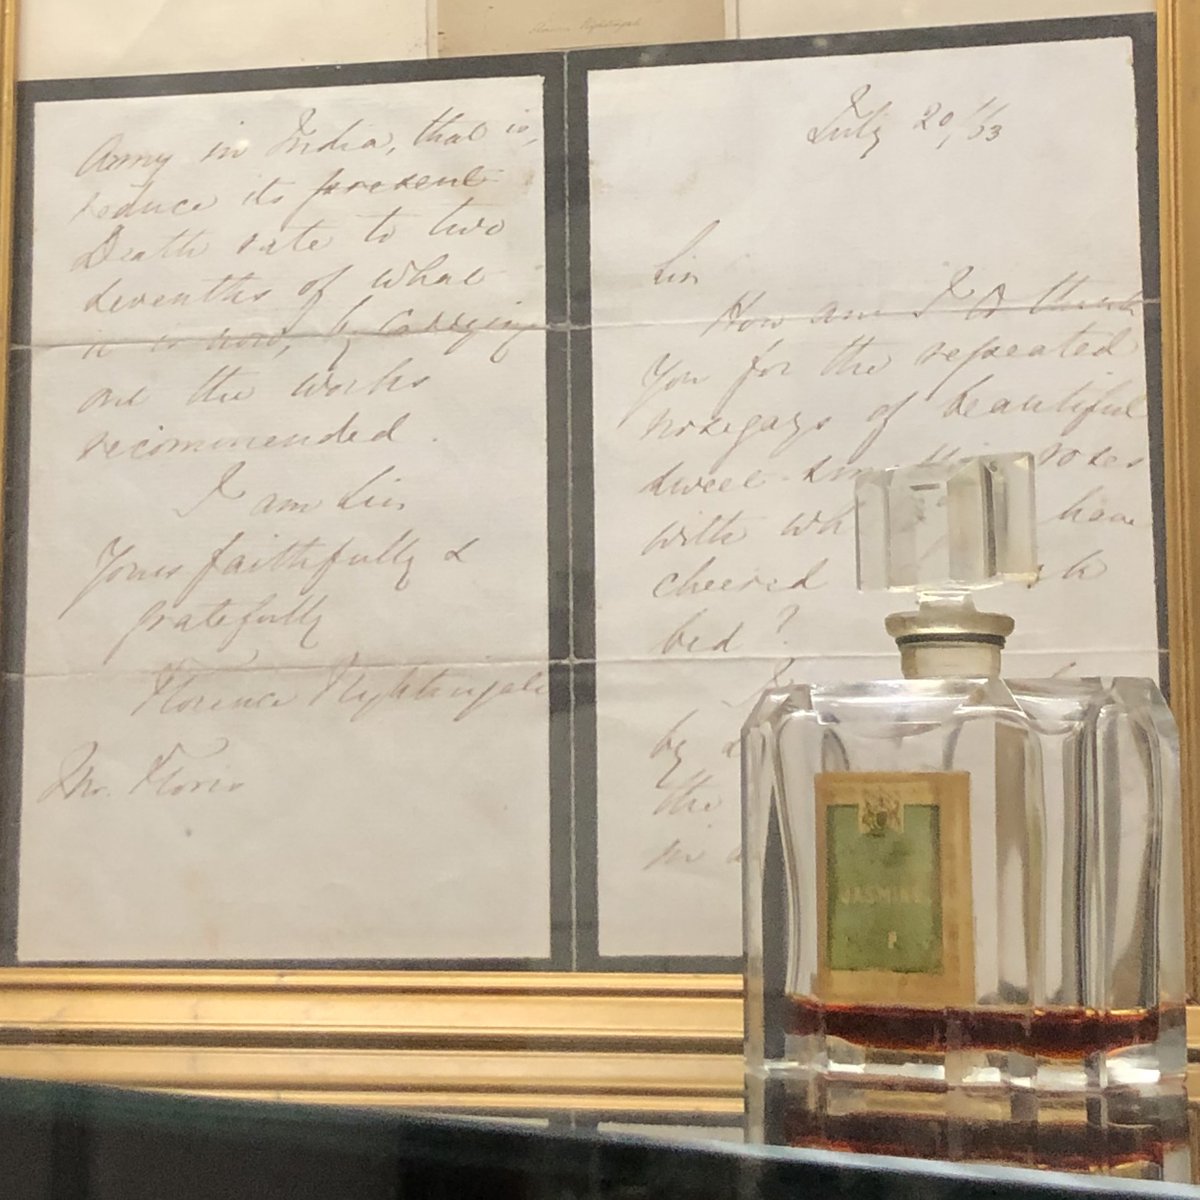 Florence Nightingale
Army in India, that is,
reduce its present
Death rate to two
sevenths of what
it is now, by carrying
out the works
recommended.
I am Sir
Yours faithfully &
gratefully
Florence Nightingale
Mr. Floris
July 20/63
Sir
How am I to thank
you for the repeated
nosegays of beautiful
sweet roses
with have
cheered
bed?
by
the
JASMINE